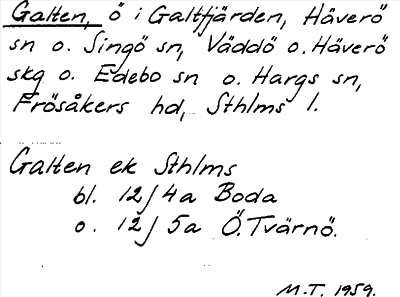 Galten, ö i Galtfjärden, Häverö
sn o. Singö sn, Väddö o. Häverö
skg o. Edebo sn o. Hargs sn,
Frösåkers hd, Sthlms l.
Galten ek Sthlms
bl. 12J 4a Boda
o. 12J 5a Ö. Tvärnö.
M.T. 1959.